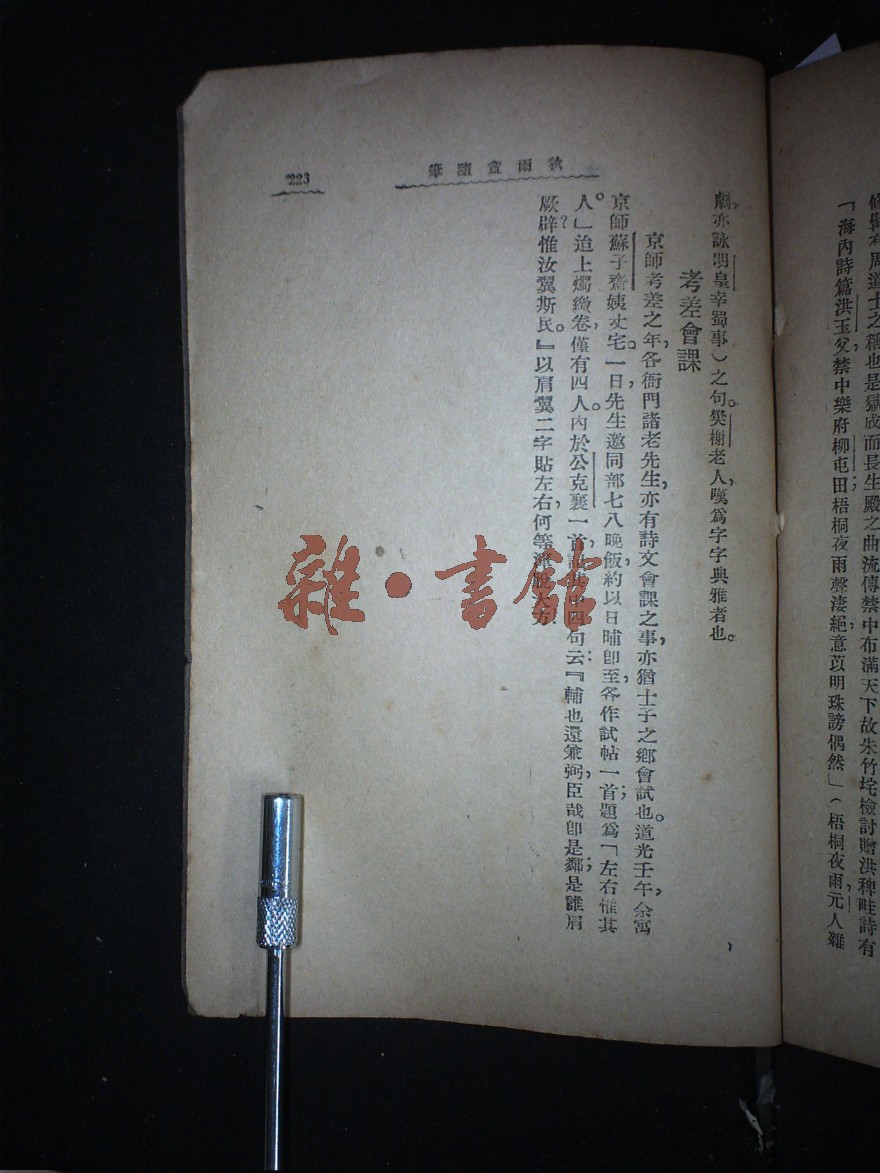 修髯有周道士之稱也是獄成而長生殿之曲流傳禁中布滿天下故朱竹垞檢討贈洪稗畦詩有
「海內詩篇洪玉父，禁中樂府柳屯田；梧桐夜雨聲淒絕，薏苡明珠謗偶然」（梧桐夜雨，元人雜
秋雨盦隨筆
223
劇，亦詠明皇幸蜀事）之句。樊榭老人，嘆爲字字典雅者也。
考差會課
京師考差之年，各衙門諸老先生，亦有詩文會課之事，亦猶士子之鄉會試也。道光壬午，余寓
京師蘇子齋姨丈宅。一日，先生邀同部七八晚飯，約以日晡卽至，各作試帖一首；題爲「左右惟其
人。」迨上燭繳卷，僅有四人。內於公克襄一首，句云：『輔也還兼弼，臣哉卽是鄰；是誰肩
厥辟？惟汝翼斯民。』以肩翼二字貼左右，何等大方
雜·書館